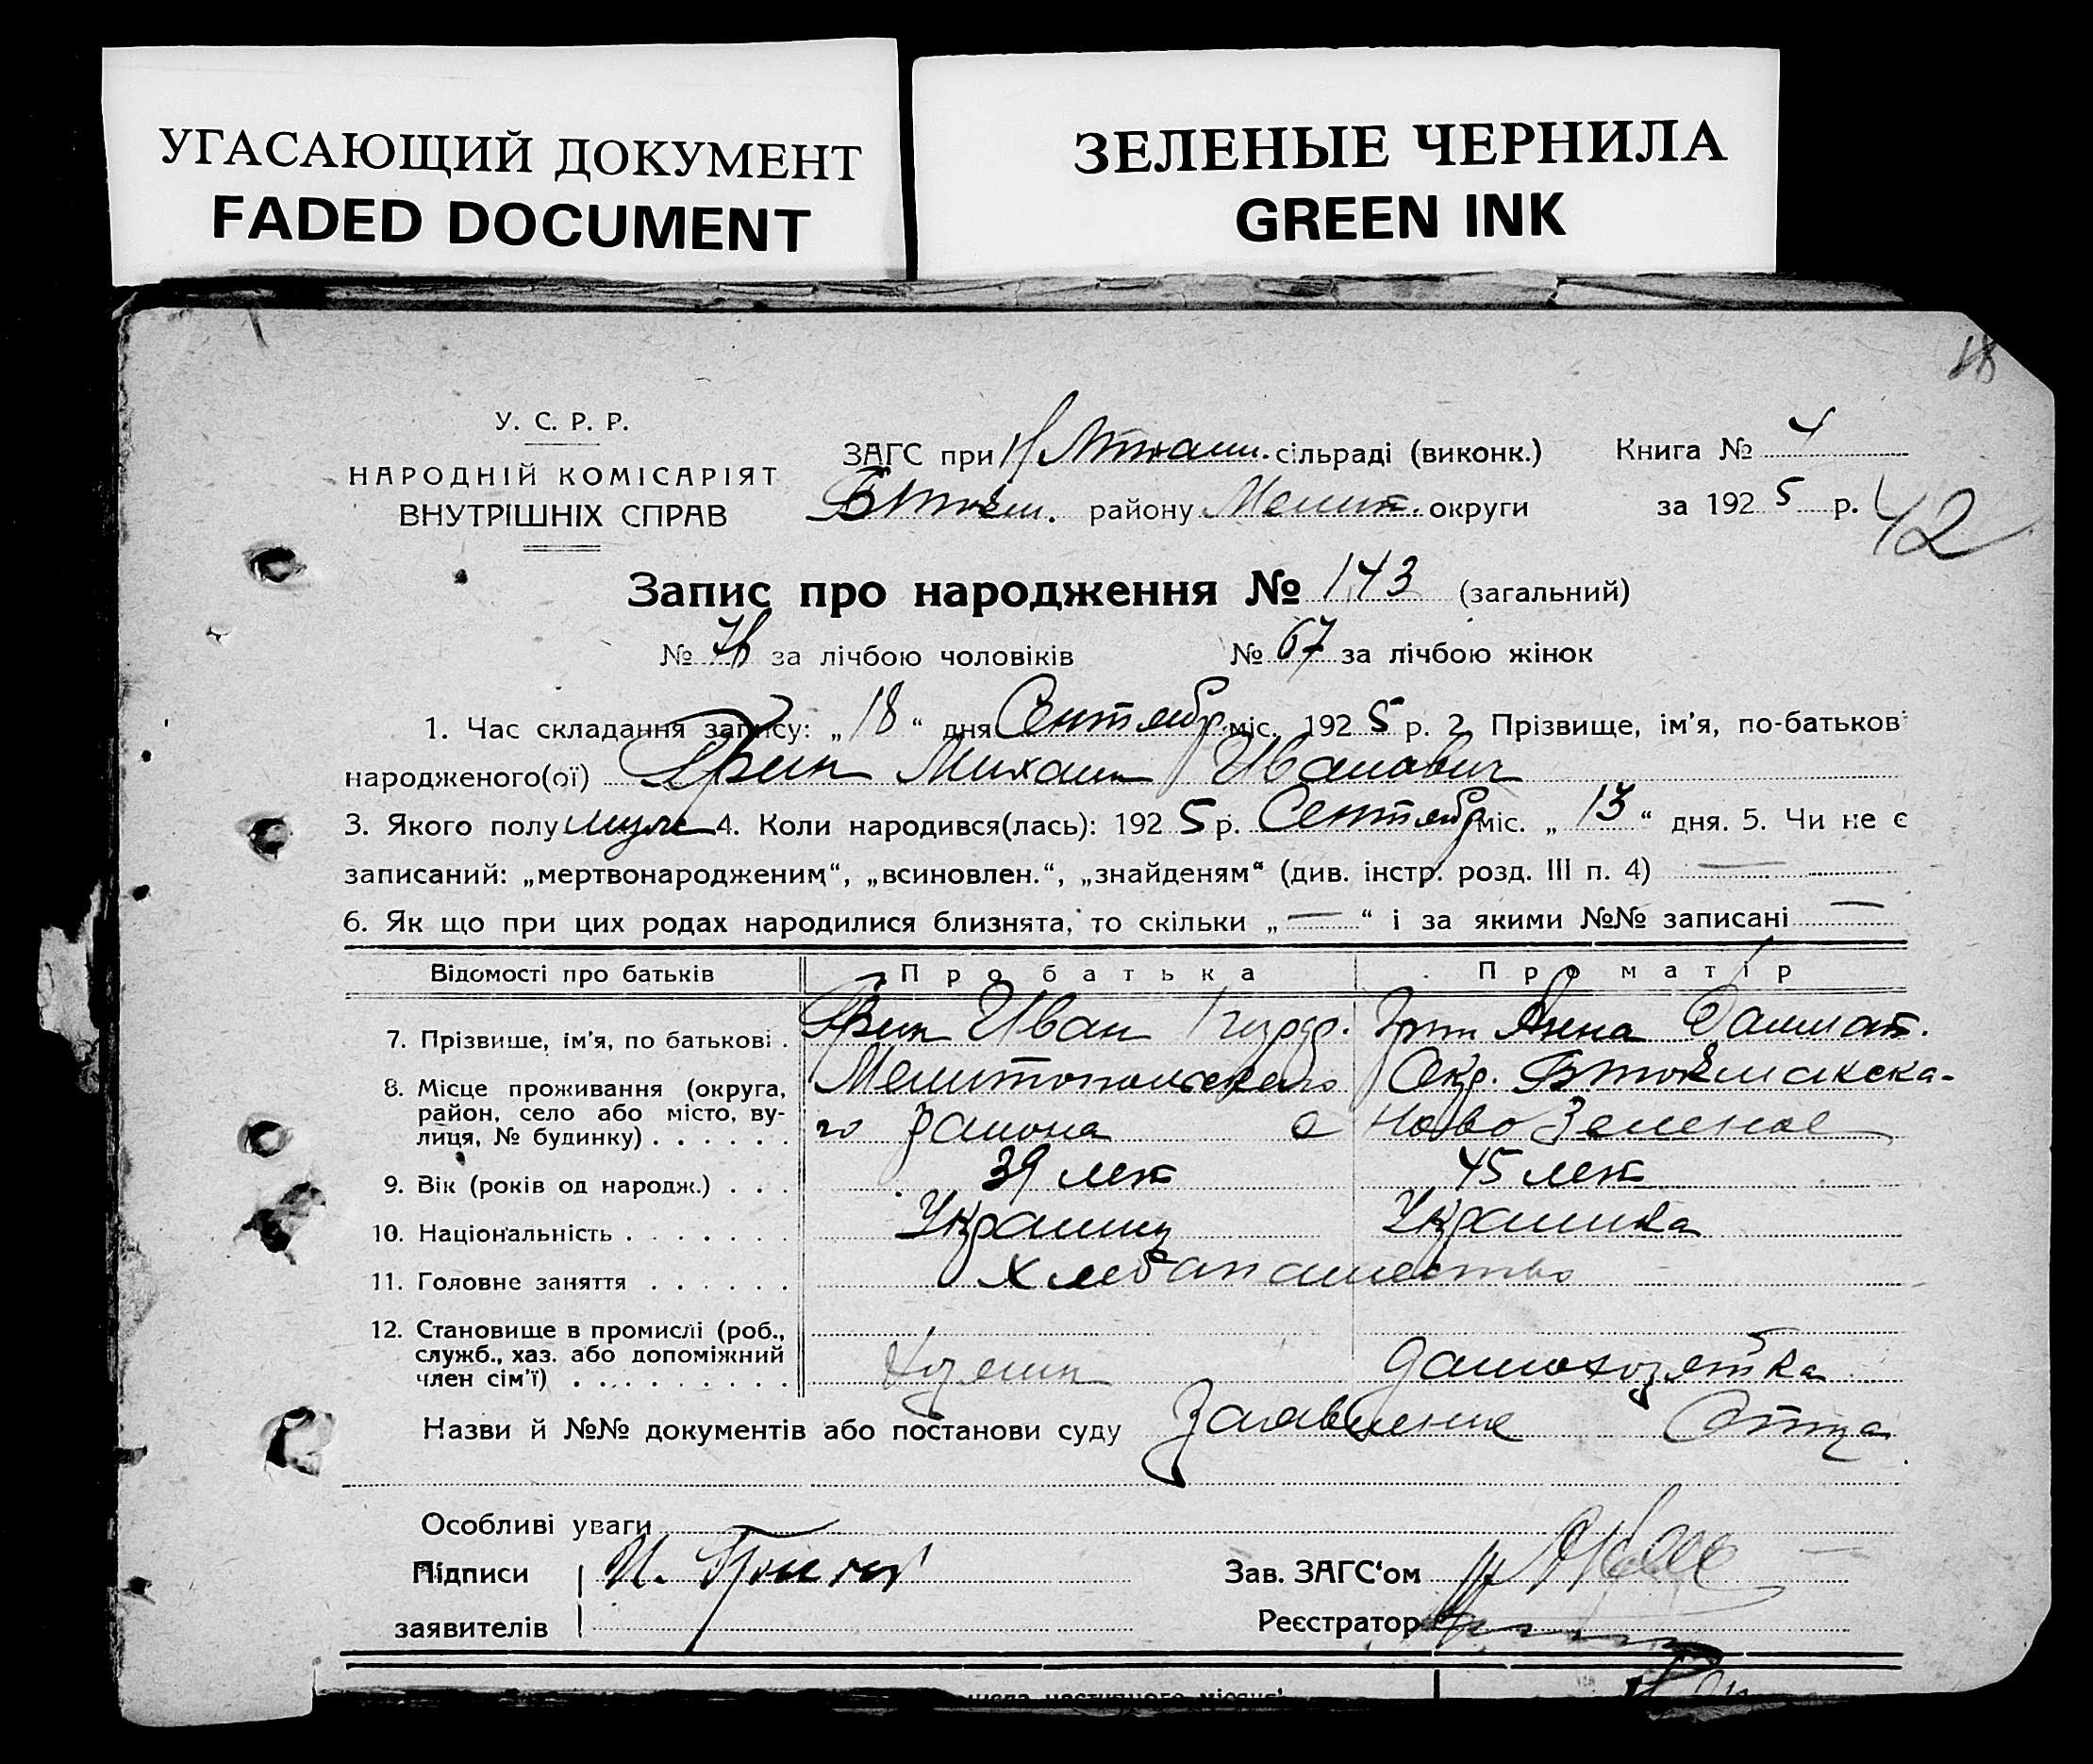 УГАСАЮЩИЙ ДОКУМЕНТ
FADED DOCUMENT
ЗЕЛЕНЫЕ ЧЕРНИЛА
GREEN INK
18
У. С. Р. Р.
НАРОДНІЙ КОМІСАРІЯТ
ВНУТРІШНІХ СПРАВ
ЗАГС при сільраді (виконк.)
району Мелит. округи
Книга № 4
за 1925 р.
42
Запис про народження № 143 (загальний)
№ 76 за лічбою чоловіків № 67 за лічбою жінок
1. Час складання запису: „18“ дня Сентябр міс. 1925 р. 2. Прізвище, ім'я, по-батькові
народженого(ої) Михаил Иванович
3. Якого полу муж 4. Коли народився(лась): 1925 р. Сентябр міс. „13“ дня. 5. Чи не є
записаний: „мертвонародженим“, „всиновлен.“, „знайденям“ (див. інстр. розд. III п. 4) —
6. Як що при цих родах народилися близнята, то скільки „—“ і за якими №№ записані —
Відомості про батьків Про батька Про матір
7. Прізвище, ім'я, по батькові . Иван Анна
8. Місце проживання (округа, район, село або місто, вулиця, № будинку) . . . . . . Мелитопольского Окр. Б Токмакска-
го района с Ново Зеленое
9. Вік (років од народж.) . . . 39 лет 45 лет
10. Національність . . . . . . . Украинец Украинка
11. Головне заняття . . . . . . Хлебопашество
12. Становище в промислі (роб., служб., хаз. або допоміжний член сім'ї) . . . . . . . . . Хозяин домохозяйка
Назви й №№ документів або постанови суду Заявление Отца
Особливі уваги
Підписи
заявителів
Зав. ЗАГС'ом
Реєстратор